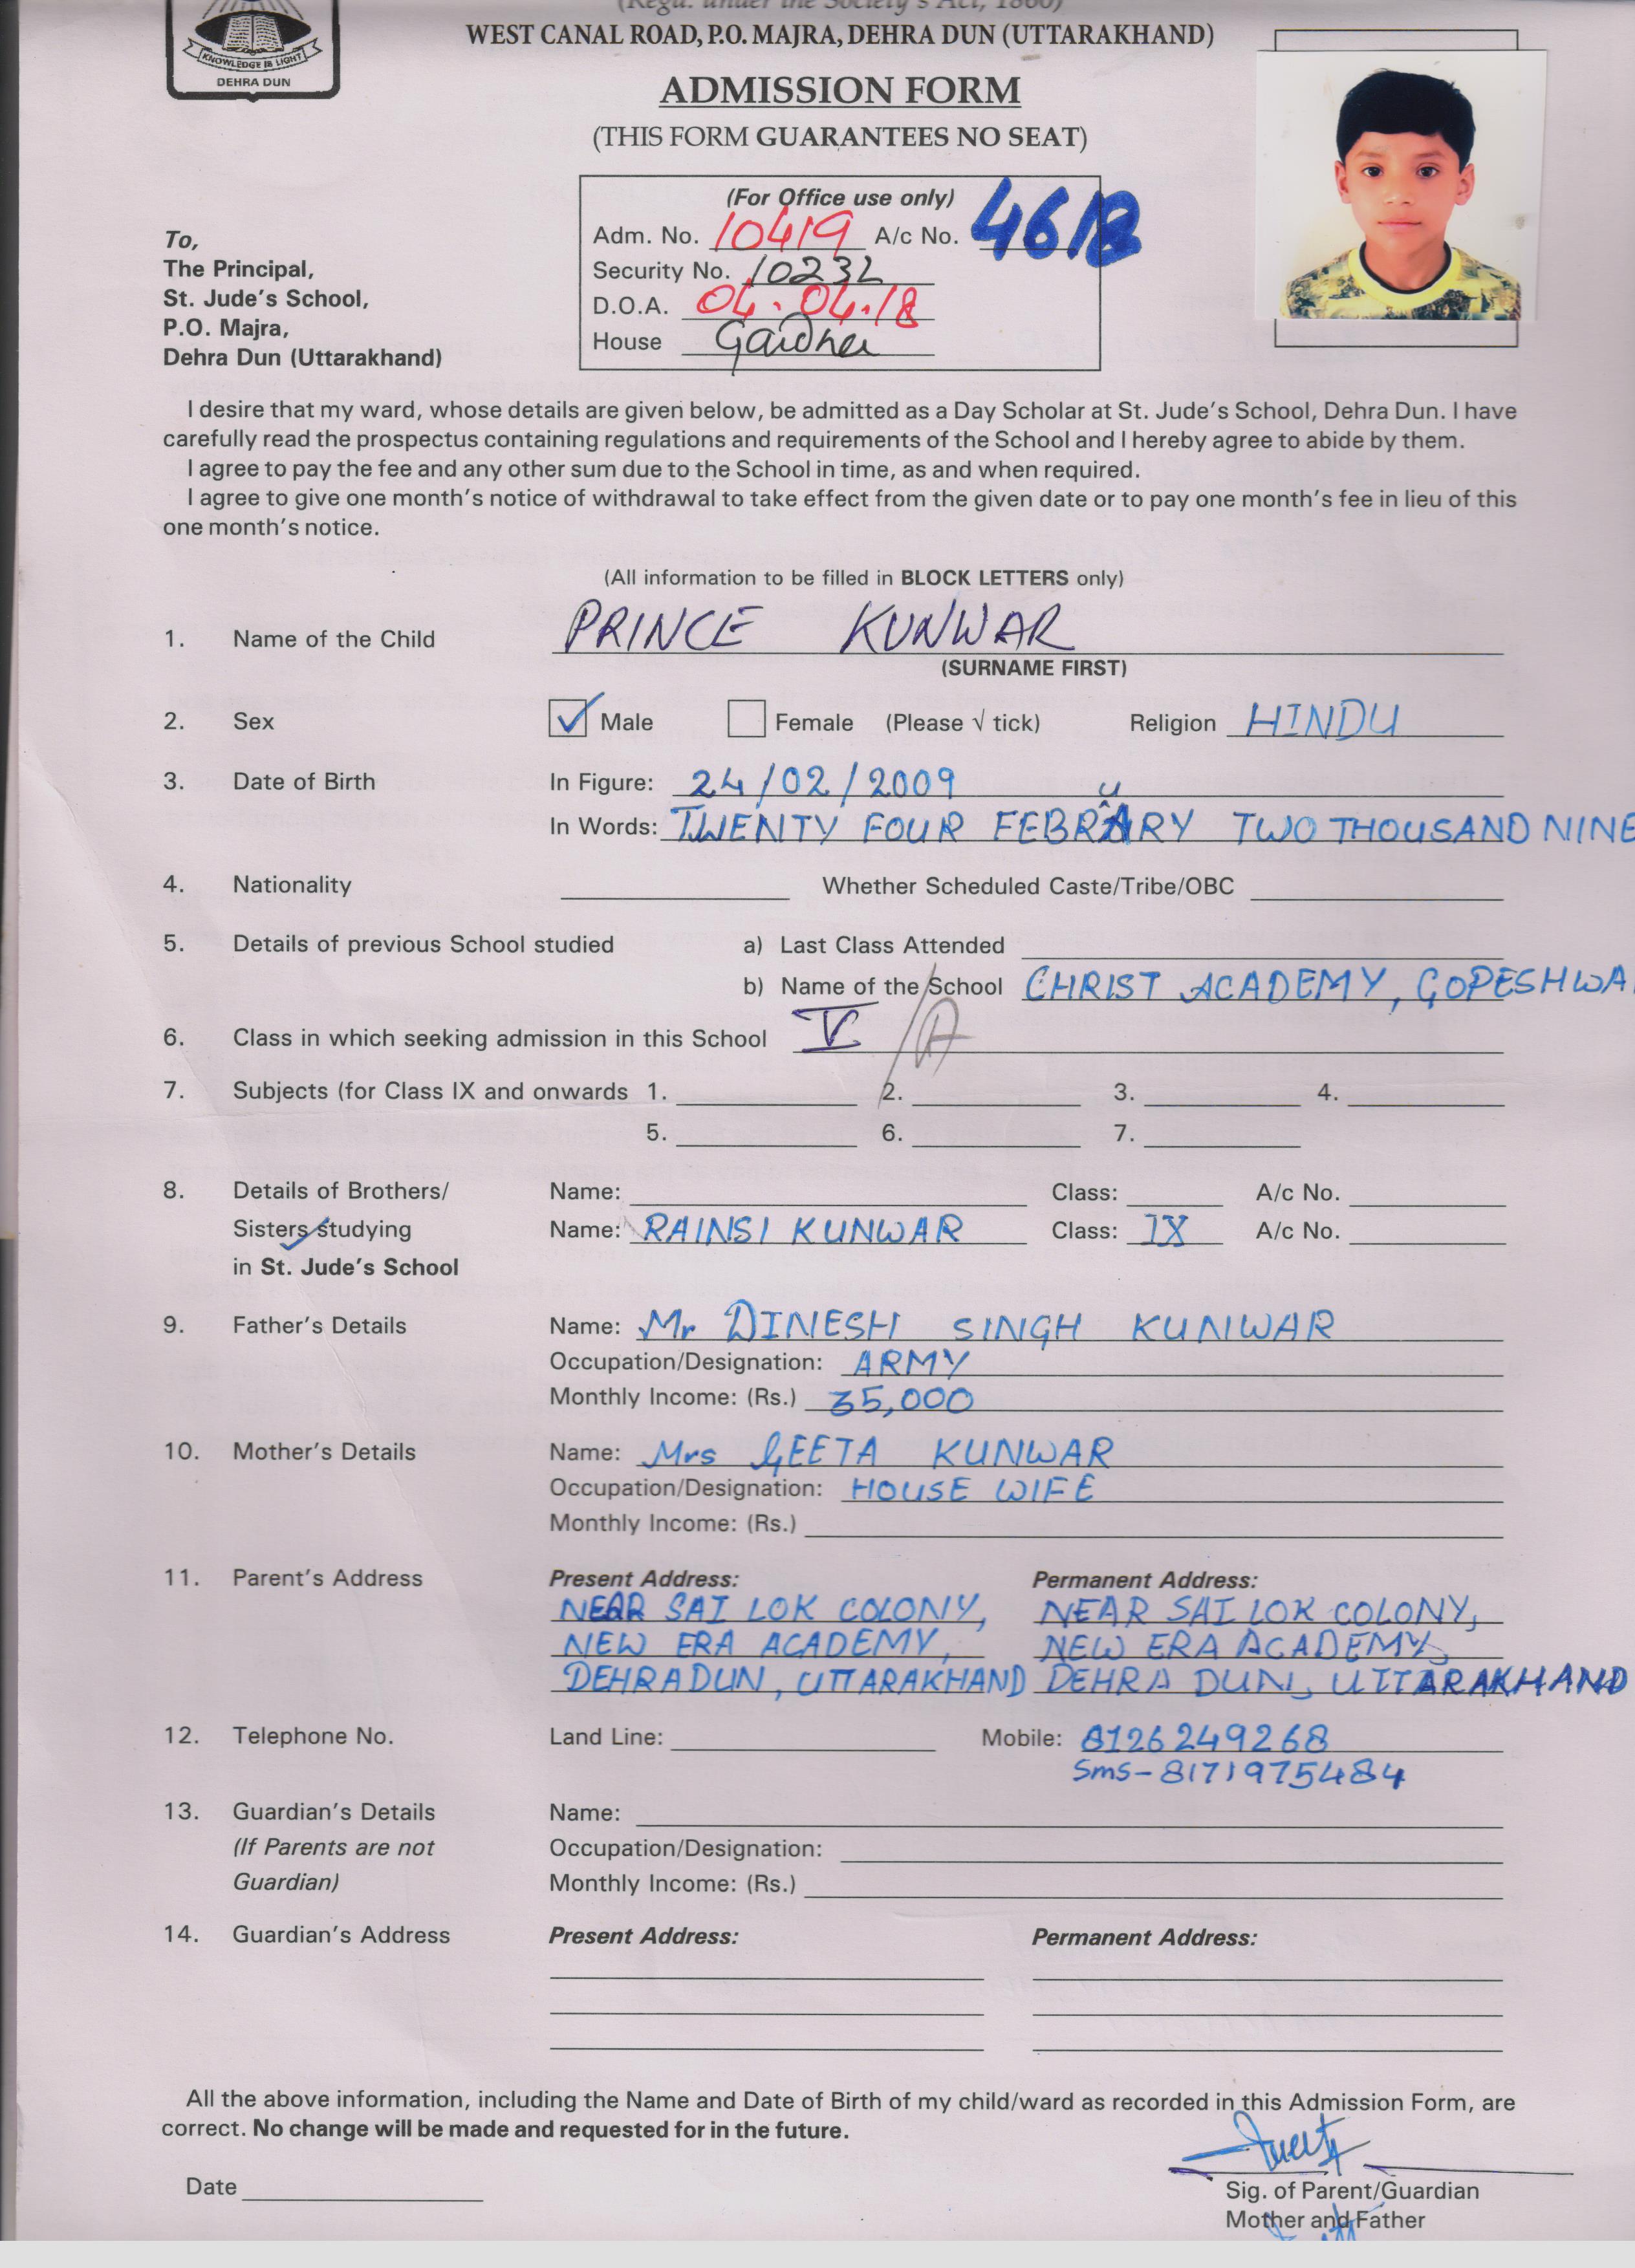 (Regd. under the Society's Act, 1860)
WEST CANAL ROAD, P.O. MAJRA, DEHRA DUN (UTTARAKHAND)
KNOWLEDGE IS LIGHT
DEHRA DUN
ADMISSION FORM
(THIS FORM GUARANTEES NO SEAT)
(For Office use only)
Adm. No. 10419 A/c No. 4618
Security No. 10232
D.O.A. 04.04.18
House Gardner
To,
The Principal,
St. Jude's School,
P.O. Majra,
Dehra Dun (Uttarakhand)
I desire that my ward, whose details are given below, be admitted as a Day Scholar at St. Jude's School, Dehra Dun. I have
carefully read the prospectus containing regulations and requirements of the School and I hereby agree to abide by them.
I agree to pay the fee and any other sum due to the School in time, as and when required.
I agree to give one month's notice of withdrawal to take effect from the given date or to pay one month's fee in lieu of this
one month's notice.
(All information to be filled in BLOCK LETTERS only)
1. Name of the Child PRINCE KUNWAR
(SURNAME FIRST)
2. Sex Male Female (Please √ tick) Religion HINDU
3. Date of Birth In Figure: 24/02/2009
In Words: TWENTY FOUR FEBRUARY TWO THOUSAND NINE
4. Nationality Whether Scheduled Caste/Tribe/OBC
5. Details of previous School studied a) Last Class Attended
b) Name of the School CHRIST ACADEMY, GOPESHWA
6. Class in which seeking admission in this School V /A
7. Subjects (for Class IX and onwards 1. 2. 3. 4.
5. 6. 7.
8. Details of Brothers/ Name: Class: A/c No.
Sisters studying Name: RAINSI KUNWAR Class: IX A/c No.
in St. Jude's School
9. Father's Details Name: Mr DINESH SINGH KUNWAR
Occupation/Designation: ARMY
Monthly Income: (Rs.) 35,000
10. Mother's Details Name: Mrs GEETA KUNWAR
Occupation/Designation: HOUSE WIFE
Monthly Income: (Rs.)
11. Parent's Address Present Address: Permanent Address:
NEAR SAI LOK COLONY, NEAR SAI LOK COLONY,
NEW ERA ACADEMY, NEW ERA ACADEMY,
DEHRADUN, UTTARAKHAND DEHRA DUN, UTTARAKHAND
12. Telephone No. Land Line: Mobile: 8126249268
Sms-8171975484
13. Guardian's Details Name:
(If Parents are not Occupation/Designation:
Guardian) Monthly Income: (Rs.)
14. Guardian's Address Present Address: Permanent Address:
All the above information, including the Name and Date of Birth of my child/ward as recorded in this Admission Form, are
correct. No change will be made and requested for in the future.
Date
Sig. of Parent/Guardian
Mother and Father